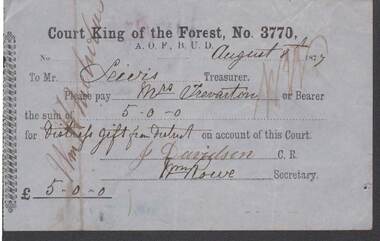 Court King of the Forest, No. 3770,
A. O. F., B. U. D.
No August 1877
To Mr. Lewis Treasurer.
Please pay Mrs Trevarton or Bearer
the sum of 5-0-0
for Distress gift from District on account of this Court.
J Davidson C. R.
Wm Rowe Secretary.
£ 5-0-0